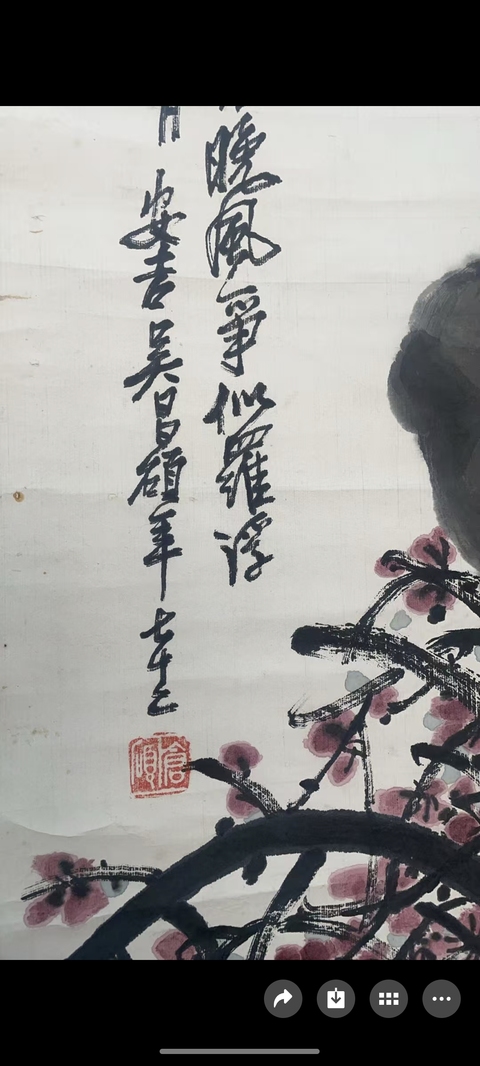 晚風爭似羅浮
安吉吳昌碩年七十二
倉碩